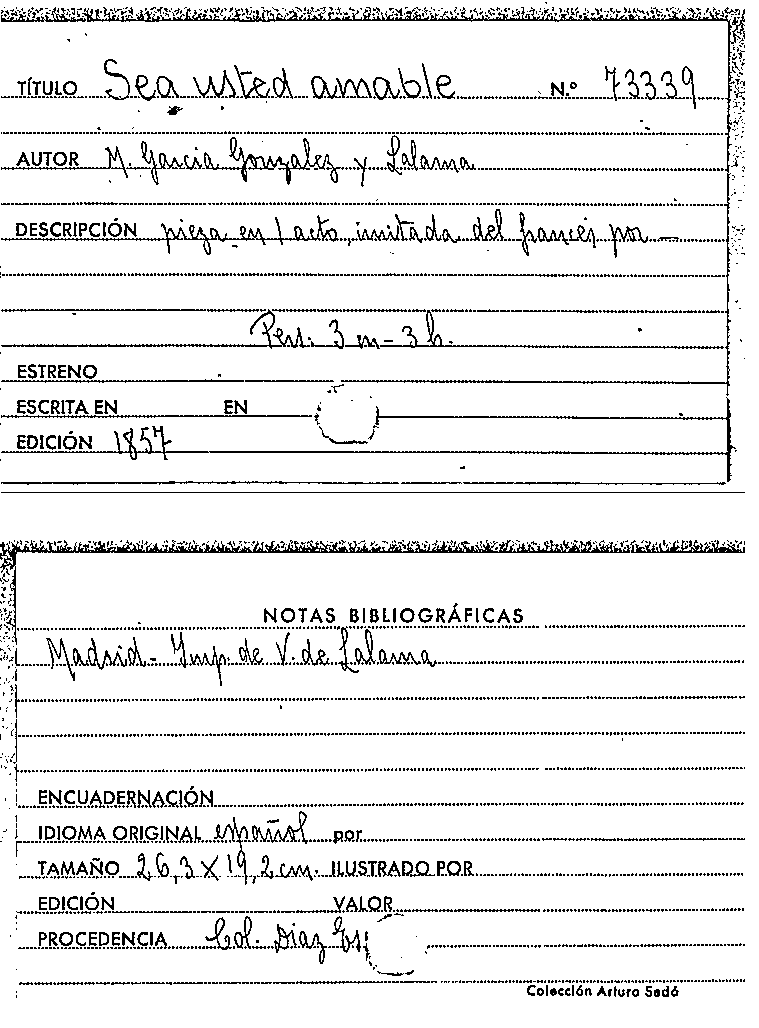 TÍTULO Sea usted amable N.º 73339
AUTOR M. Garcia Gonzalez y Lalama
DESCRIPCIÓN pieza en 1 acto, imitada del francés por —
Pers: 3 m - 3 h.
ESTRENO
ESCRITA EN EN
EDICIÓN 1857
NOTAS BIBLIOGRÁFICAS
Madrid - Imp. de V. de Lalama
ENCUADERNACIÓN
IDIOMA ORIGINAL español por
TAMAÑO 26,3 X 19,2 cm. ILUSTRADO POR
EDICIÓN VALOR
PROCEDENCIA Col. Diaz
Colección Arturo Sedó